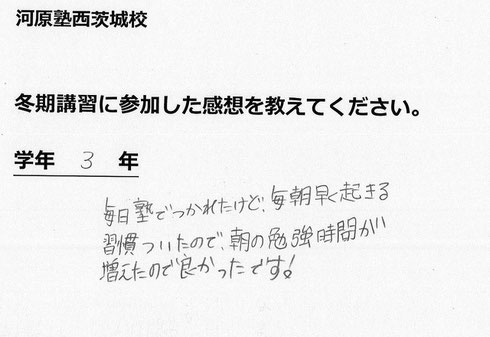 河原塾西茨城校
冬期講習に参加した感想を教えてください。
学年 3 年
毎日塾でつかれたけど、毎朝早く起きる
習慣ついたので、朝の勉強時間が
増えたので良かったです!